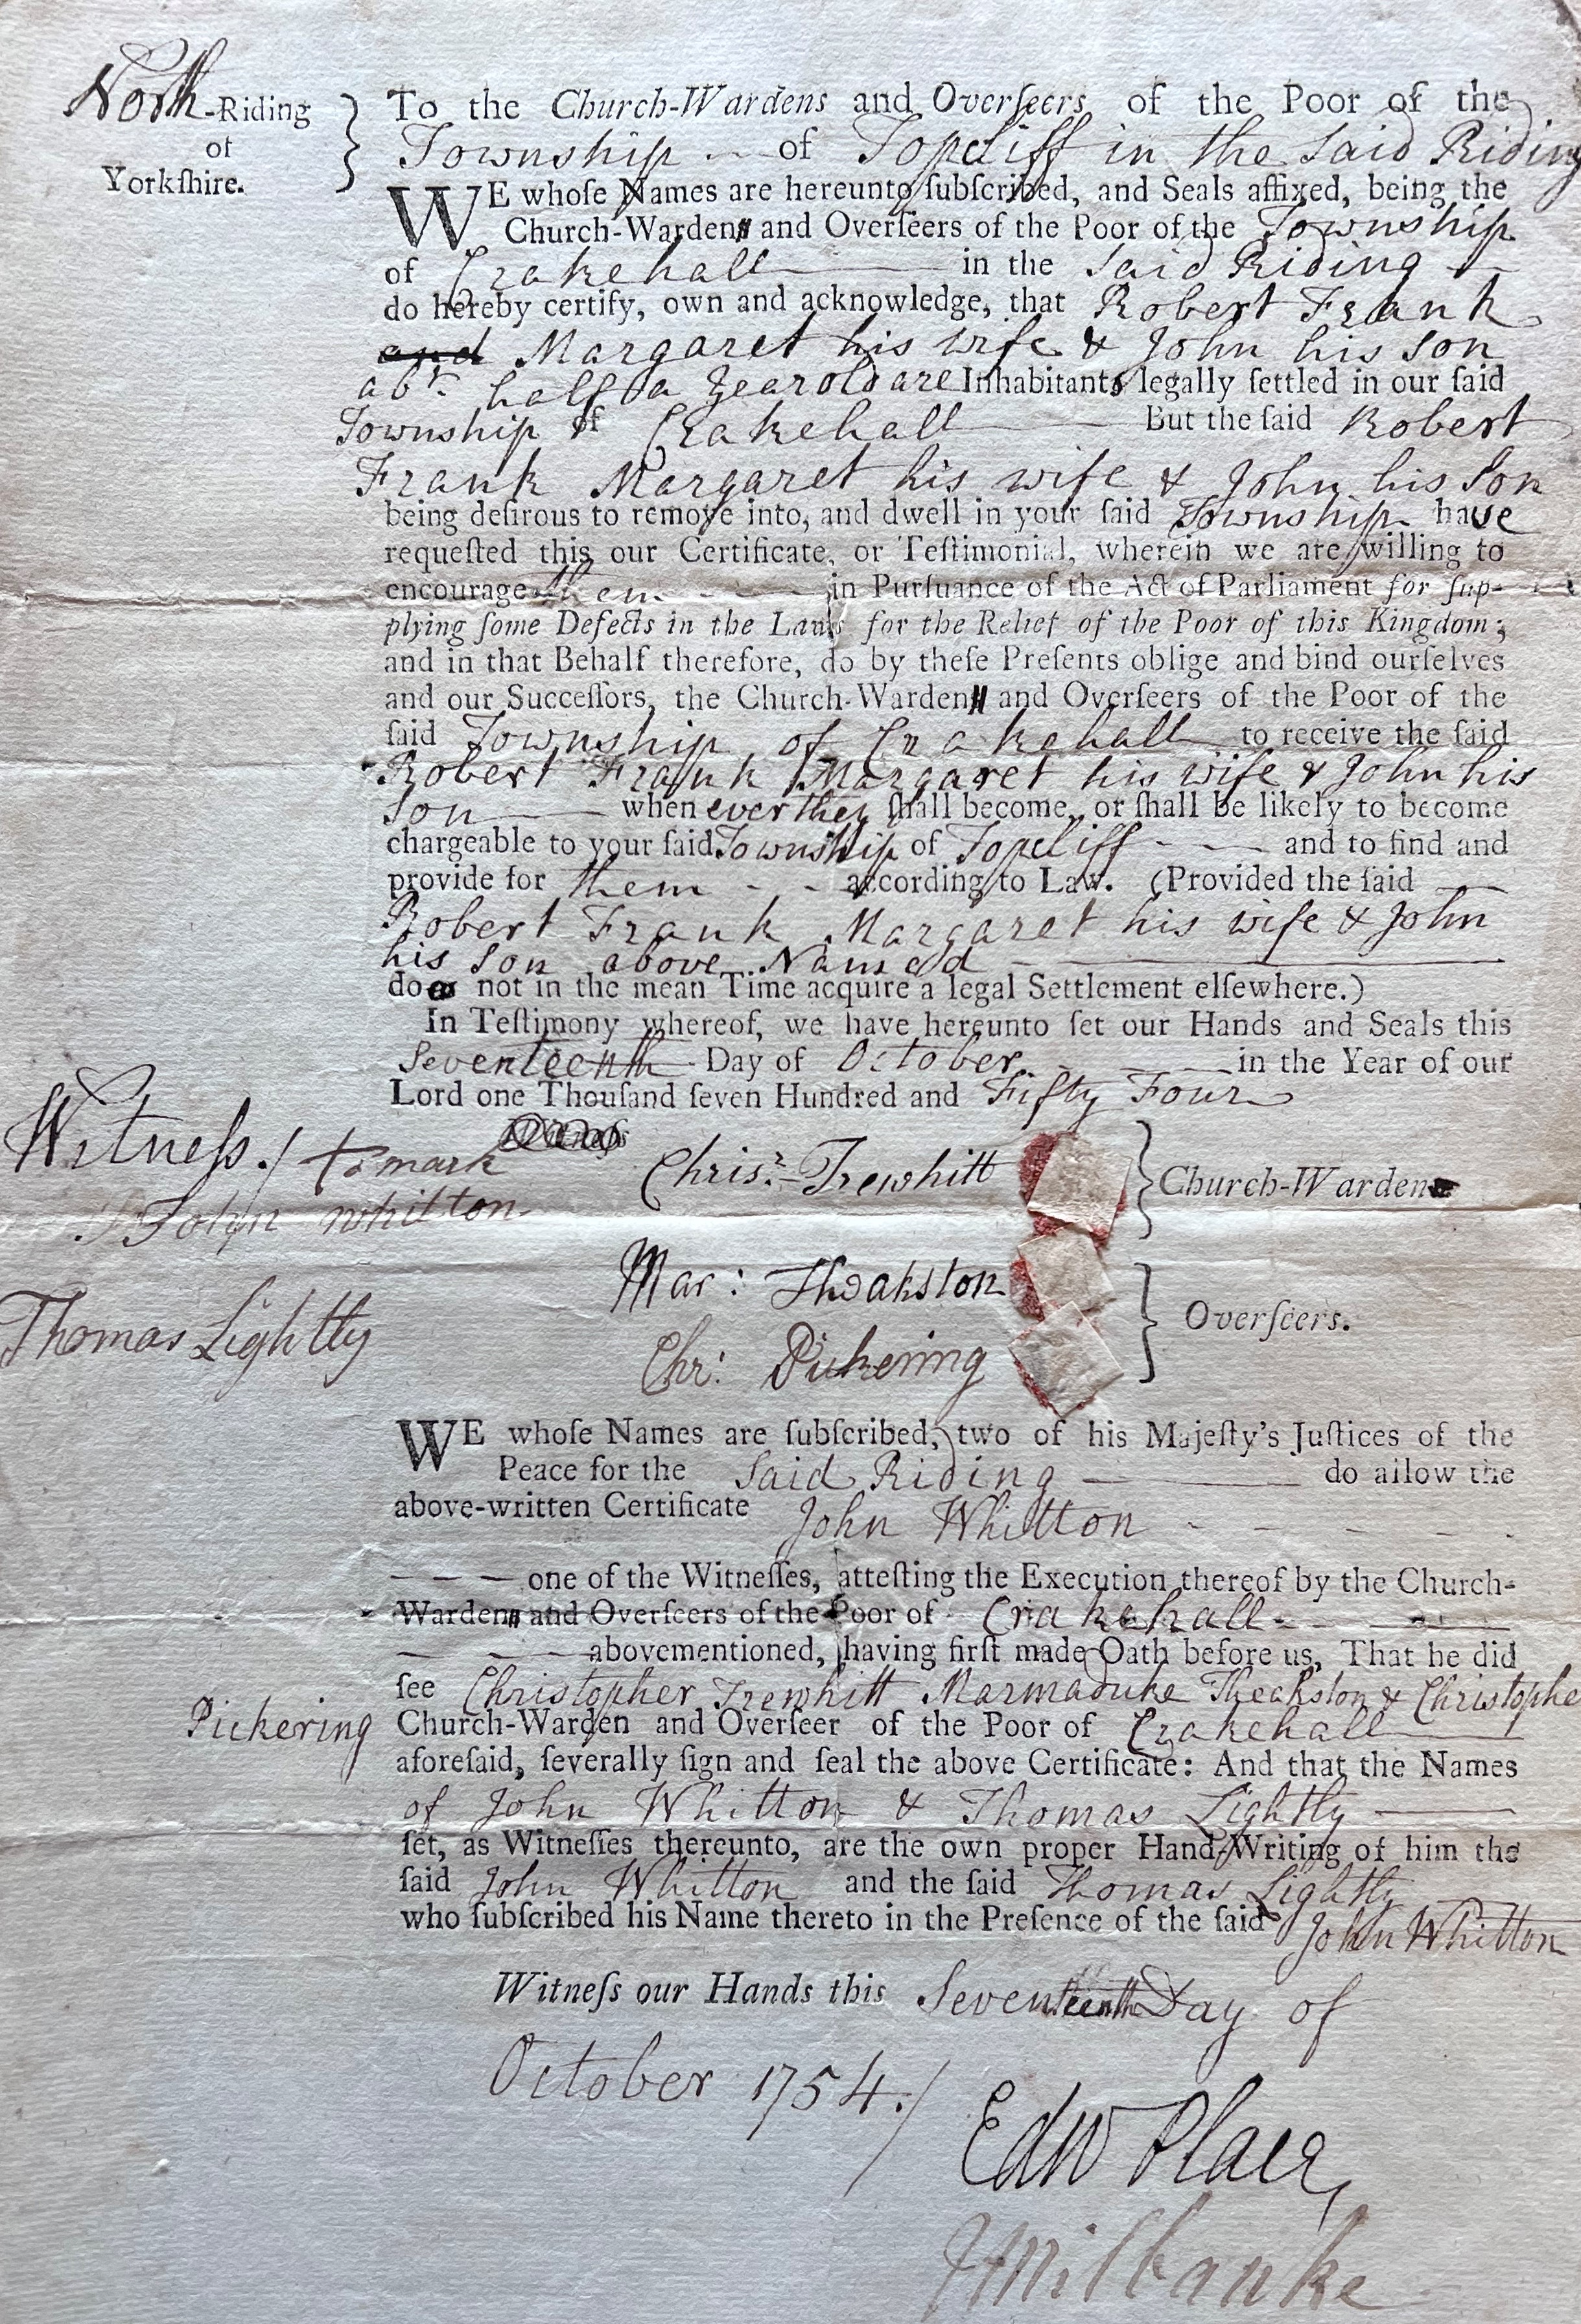 North-Riding
of
Yorkſhire.
To the Church-Wardens and Overſeers of the Poor of the
Township of Topcliff in the Said Riding
WE whoſe Names are hereunto ſubſcribed, and Seals affixed, being the
Church-Warden and Overſeers of the Poor of the Township
of Crakehall in the Said Riding
do hereby certify, own and acknowledge, that Robert Frank
and Margaret his wife & John his son
abt. half a year old are Inhabitants legally ſettled in our ſaid
Township of Crakehall But the ſaid Robert
Frank Margaret his wife & John his Son
being deſirous to remove into, and dwell in your ſaid Township have
requeſted this our Certificate, or Teſtimonial, wherein we are willing to
encourage them in Purſuance of the Act of Parliament for ſup-
plying ſome Defects in the Laws for the Relief of the Poor of this Kingdom;
and in that Behalf therefore, do by theſe Preſents oblige and bind ourſelves
and our Succeſſors, the Church-Warden and Overſeers of the Poor of the
ſaid Township of Crakehall to receive the ſaid
Robert Frank Margaret his wife & John his
Son when ever they ſhall become, or ſhall be likely to become
chargeable to your ſaid Township of Topcliff and to find and
provide for them according to Law. (Provided the ſaid
Robert Frank Margaret his wife & John
his Son above Named
do not in the mean Time acquire a legal Settlement elſewhere.)
In Teſtimony whereof, we have hereunto ſet our Hands and Seals this
Seventeenth Day of October in the Year of our
Lord one Thouſand ſeven Hundred and Fifty Four
Witneſs./ mark
John whitton
Chrisr. Trewhitt Church-Warden
Mar: Theakston
Thomas Lightly
Overſeers.
Chr: Pickering
WE whoſe Names are ſubſcribed, two of his Majeſty's Juſtices of the
Peace for the Said Riding do allow the
above-written Certificate John Whitton
one of the Witneſſes, atteſting the Execution thereof by the Church-
Warden and Overſeers of the Poor of Crakehall
abovementioned, having firſt made Oath before us, That he did
ſee Christopher Trewhitt Marmaduke Theakston & Christophe
Pickering Church-Warden and Overſeer of the Poor of Crakehall
aforeſaid, ſeverally ſign and ſeal the above Certificate: And that the Names
of John Whitton & Thomas Lightly
ſet, as Witneſſes thereunto, are the own proper Hand-Writing of him the
ſaid John Whitton and the ſaid Thomas Lightly
who ſubſcribed his Name thereto in the Preſence of the ſaid John Whitton
Witneſs our Hands this Seventeenth Day of
October 1754./
Edw Place
J Milbanke